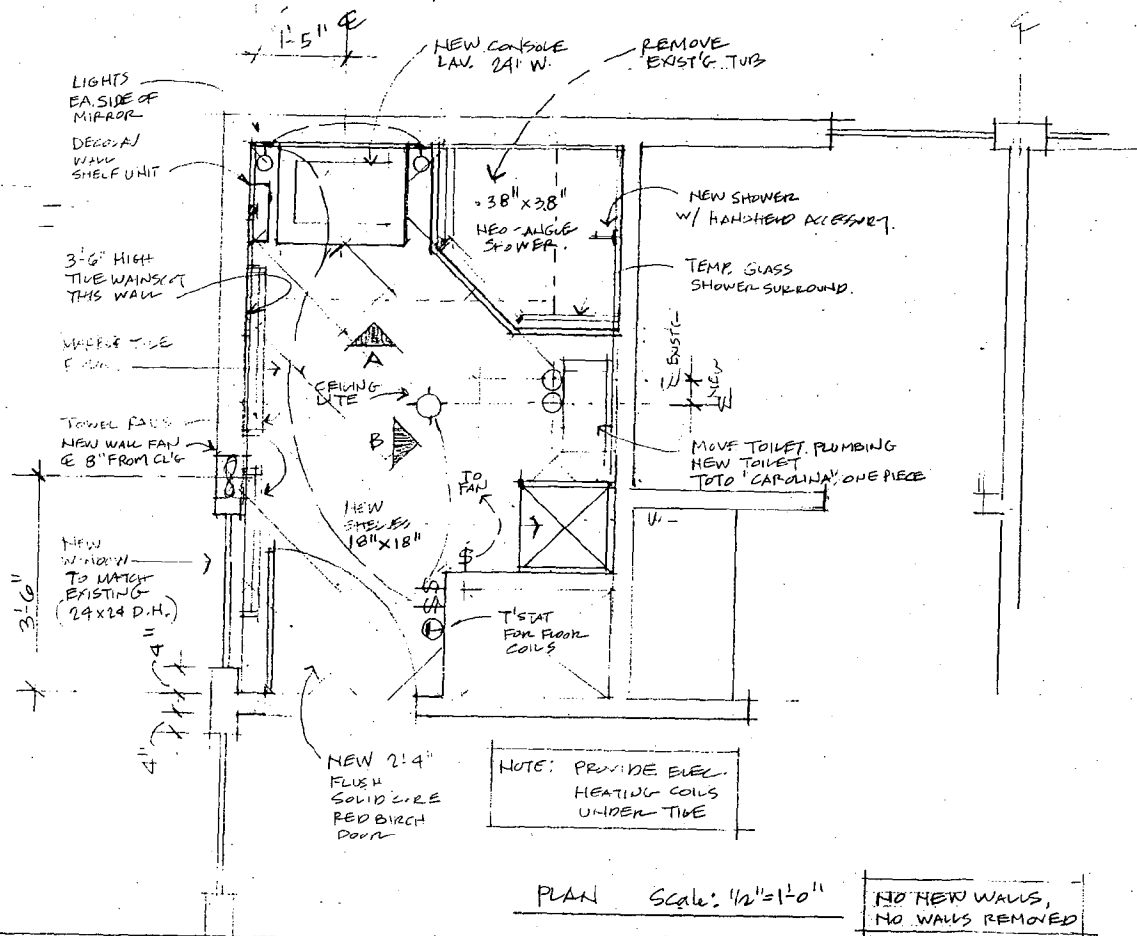 1'-5"
℄
℄
NEW CONSOLE
LAV. 24" W.
REMOVE
EXIST'G. TUB
LIGHTS
EA. SIDE OF
MIRROR
WALL
SHELF UNIT
38" x 38"
NEO-ANGLE
SHOWER.
NEW SHOWER
W/ HANDHELD ACCESSORY.
3'-6" HIGH
TILE WAINSCOT
THIS WALL
TEMP. GLASS
SHOWER SURROUND.
TILE
A
℄ EXIST'G
℄ NEW
CEILING
LITE
TOWEL
NEW WALL FAN
℄ 8" FROM CL'G
B
MOVE TOILET PLUMBING
NEW TOILET
TOTO "CAROLINA" ONE PIECE
TO
FAN
NEW
SHELVES
18" x 18"
$
NEW
WINDOW
TO MATCH
EXISTING
(24x24 D.H.)
3'-6"
$
$
T'STAT
FOR FLOOR
COILS
4"
4"
NEW 2'-4"
FLUSH
SOLID CORE
RED BIRCH
DOOR
NOTE: PROVIDE ELEC.
HEATING COILS
UNDER TILE
PLAN Scale: 1/2"=1'-0"
NO NEW WALLS,
NO WALLS REMOVED